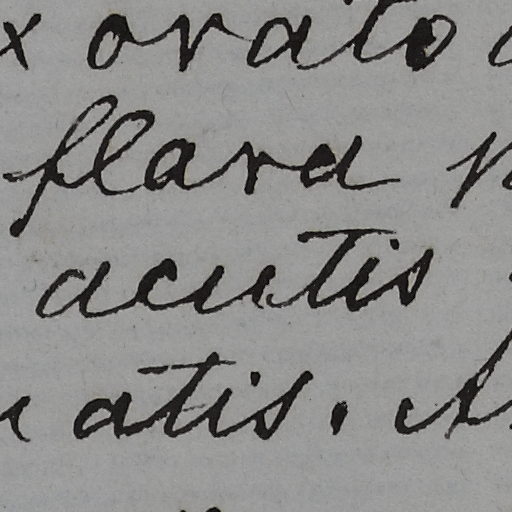 x ovato
flava
acutis
atis.